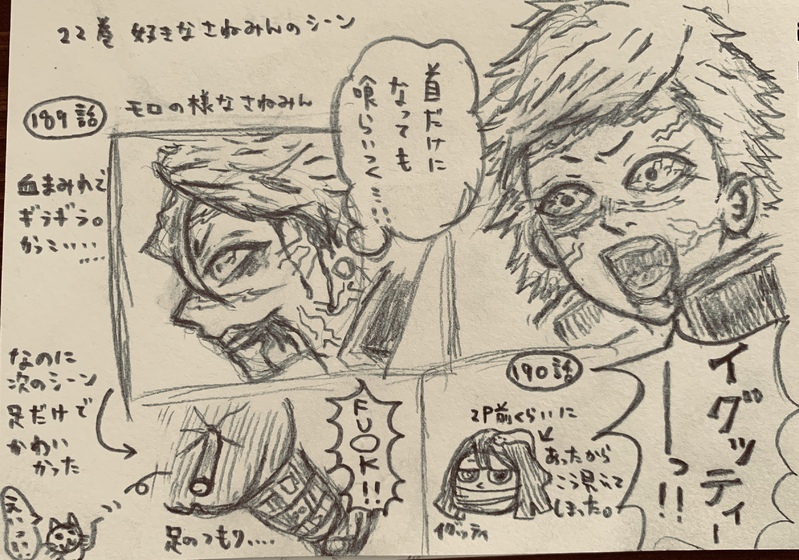 22巻 好きなさねみんのシーン
189話
モロの様なさねみん
血まみれで
ギラギラ。
かっこいい....
首だけに
なっても
喰らいつく…!!
なのに
次のシーン
足だけで
かわい
かった
FU○K!!
足のつもり....
190話
2P前くらいに
あったから
こう見えて
しまった。
イグッティ
イグッティーーっ!!